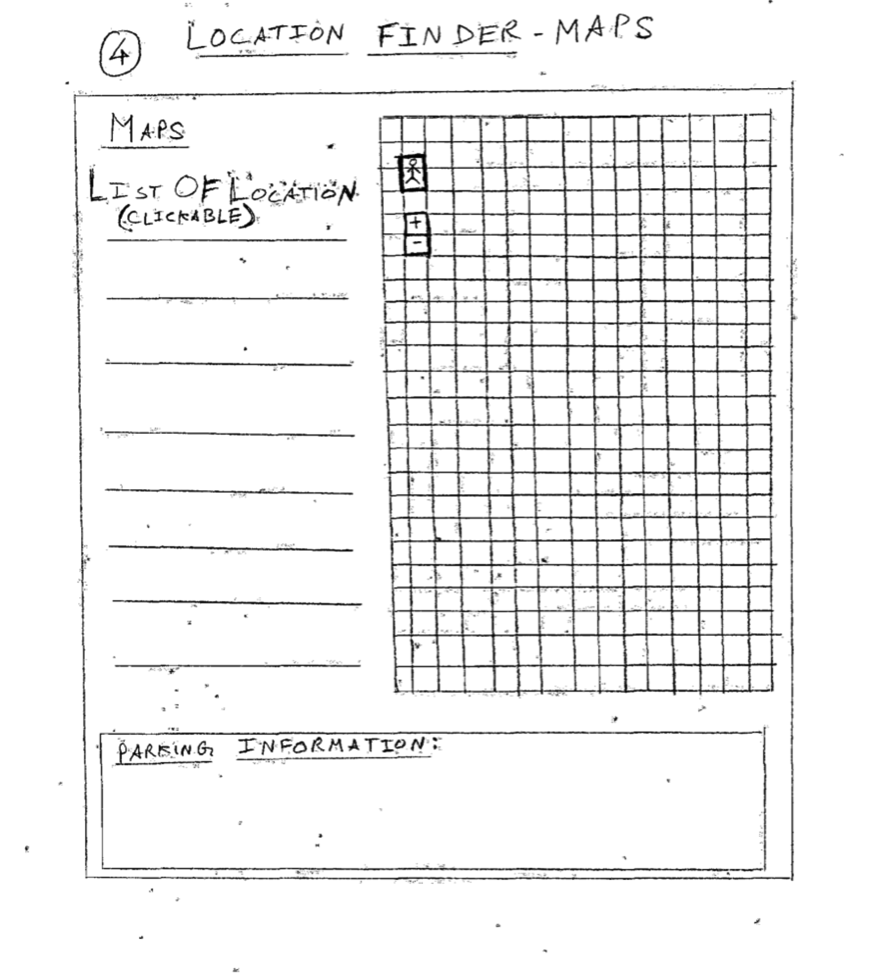 4 LOCATION FINDER - MAPS
MAPS
LIST OF LOCATION
(CLICKABLE)
+
-
PARKING INFORMATION: